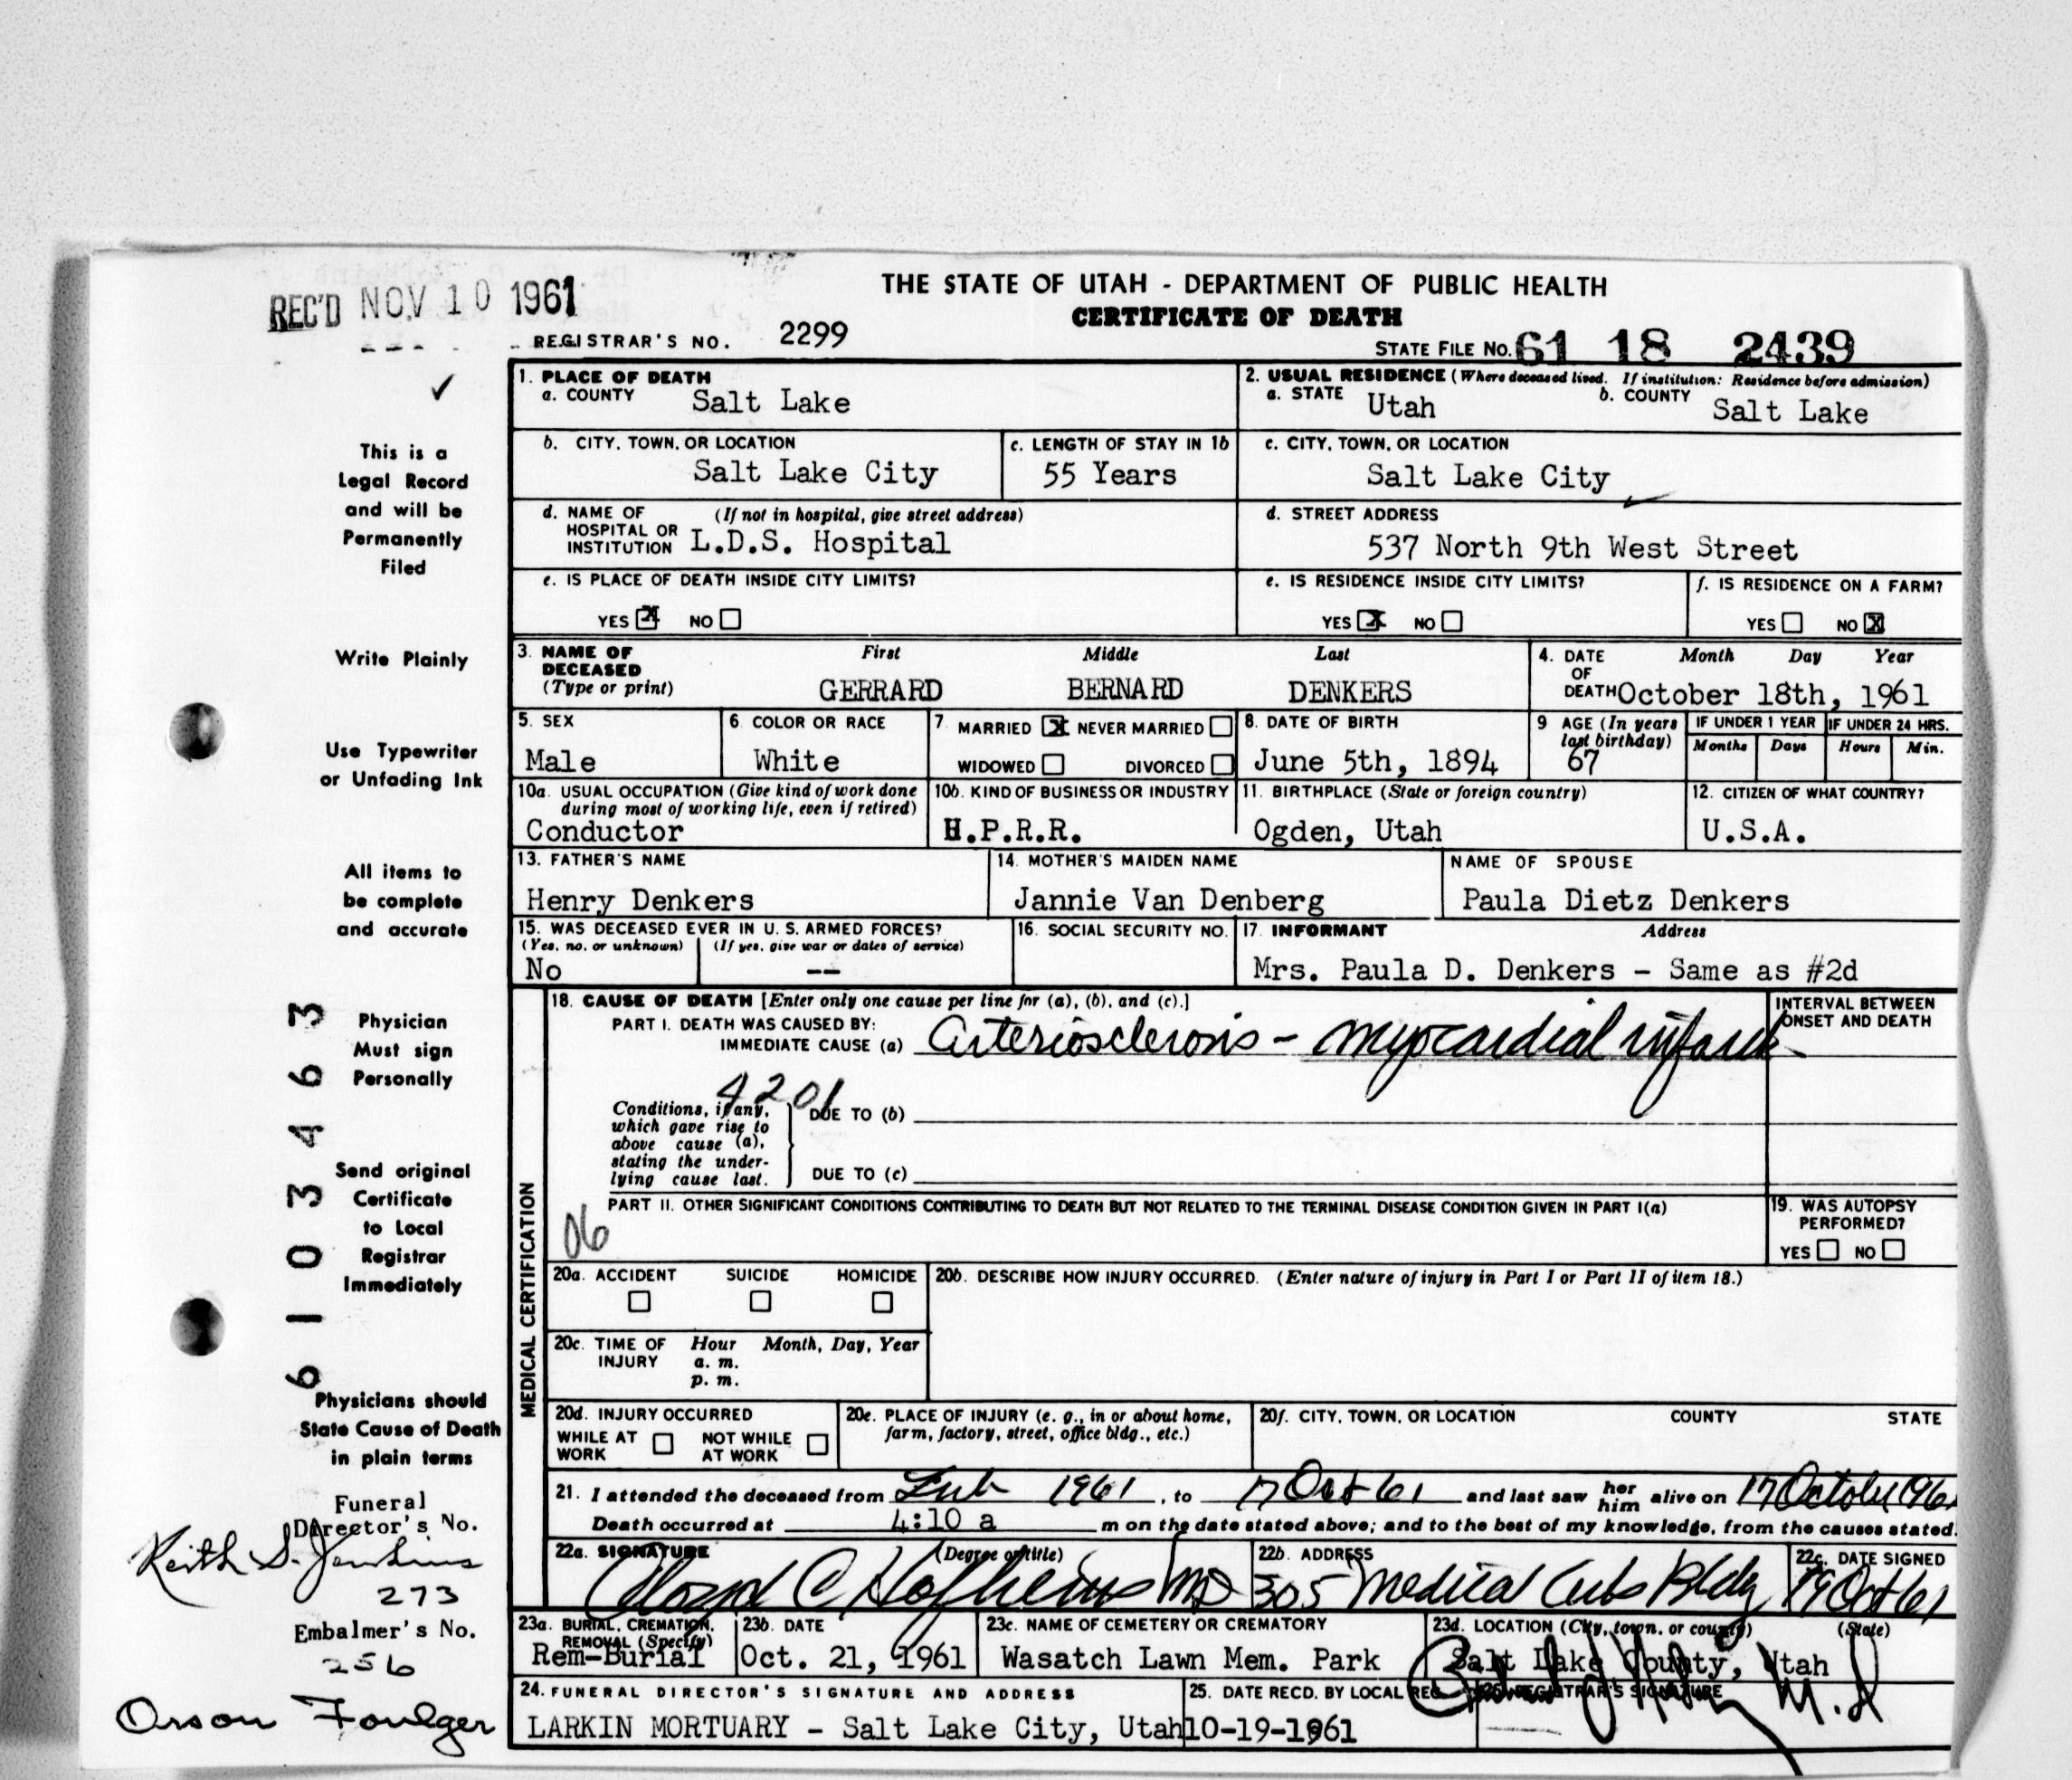 THE STATE OF UTAH - DEPARTMENT OF PUBLIC HEALTH
CERTIFICATE OF DEATH
REC'D NOV 10 1961
REGISTRAR'S NO. 2299
STATE FILE NO. 61 18 2439
1. PLACE OF DEATH
a. COUNTY Salt Lake
2. USUAL RESIDENCE (Where deceased lived. If institution: Residence before admission)
a. STATE Utah b. COUNTY Salt Lake
b. CITY, TOWN, OR LOCATION
Salt Lake City
c. LENGTH OF STAY IN 1b
55 Years
c. CITY, TOWN, OR LOCATION
Salt Lake City
d. NAME OF HOSPITAL OR INSTITUTION (If not in hospital, give street address)
L.D.S. Hospital
d. STREET ADDRESS
537 North 9th West Street
e. IS PLACE OF DEATH INSIDE CITY LIMITS?
YES X NO
e. IS RESIDENCE INSIDE CITY LIMITS?
YES X NO
f. IS RESIDENCE ON A FARM?
YES NO X
3. NAME OF DECEASED (Type or print)
First Middle Last
GERRARD BERNARD DENKERS
4. DATE OF DEATH
Month Day Year
October 18th, 1961
5. SEX
Male
6. COLOR OR RACE
White
7. MARRIED X NEVER MARRIED
WIDOWED DIVORCED
8. DATE OF BIRTH
June 5th, 1894
9 AGE (In years last birthday)
67
IF UNDER 1 YEAR
Months Days
IF UNDER 24 HRS.
Hours Min.
10a. USUAL OCCUPATION (Give kind of work done during most of working life, even if retired)
Conductor
10b. KIND OF BUSINESS OR INDUSTRY
.P.R.R.
11. BIRTHPLACE (State or foreign country)
Ogden, Utah
12. CITIZEN OF WHAT COUNTRY?
U.S.A.
13. FATHER'S NAME
Henry Denkers
14. MOTHER'S MAIDEN NAME
Jannie Van Denberg
NAME OF SPOUSE
Paula Dietz Denkers
15. WAS DECEASED EVER IN U.S. ARMED FORCES?
(Yes, no, or unknown) (If yes, give war or dates of service)
No --
16. SOCIAL SECURITY NO.
17. INFORMANT Address
Mrs. Paula D. Denkers - Same as #2d
MEDICAL CERTIFICATION
18. CAUSE OF DEATH [Enter only one cause per line for (a), (b), and (c).]
PART I. DEATH WAS CAUSED BY:
IMMEDIATE CAUSE (a) Arteriosclerosis - myocardial infarct
INTERVAL BETWEEN ONSET AND DEATH
4201
Conditions, if any, which gave rise to above cause (a), stating the underlying cause last.
DUE TO (b)
DUE TO (c)
PART II. OTHER SIGNIFICANT CONDITIONS CONTRIBUTING TO DEATH BUT NOT RELATED TO THE TERMINAL DISEASE CONDITION GIVEN IN PART I(a)
06
19. WAS AUTOPSY PERFORMED?
YES NO
20a. ACCIDENT SUICIDE HOMICIDE
20b. DESCRIBE HOW INJURY OCCURRED. (Enter nature of injury in Part I or Part II of item 18.)
20c. TIME OF INJURY Hour Month, Day, Year
a. m.
p. m.
20d. INJURY OCCURRED
WHILE AT WORK NOT WHILE AT WORK
20e. PLACE OF INJURY (e. g., in or about home, farm, factory, street, office bldg., etc.)
20f. CITY, TOWN, OR LOCATION COUNTY STATE
21. I attended the deceased from Feb 1961, to 17 Oct 61 and last saw her him alive on 17 October 1961
Death occurred at 4:10 a m on the date stated above; and to the best of my knowledge, from the causes stated.
22a. SIGNATURE (Degree or title)
C MD
22b. ADDRESS
305 Medical Arts Bldg
22c. DATE SIGNED
19 Oct 61
23a. BURIAL, CREMATION, REMOVAL (Specify)
Rem-Burial
23b. DATE
Oct. 21, 1961
23c. NAME OF CEMETERY OR CREMATORY
Wasatch Lawn Mem. Park
23d. LOCATION (City, town, or county) (State)
Salt Lake County, Utah
24. FUNERAL DIRECTOR'S SIGNATURE AND ADDRESS
LARKIN MORTUARY - Salt Lake City, Utah
25. DATE RECD. BY LOCAL REG.
10-19-1961
26. REGISTRAR'S SIGNATURE
M.D
✓
This is a
Legal Record
and will be
Permanently
Filed
Write Plainly
Use Typewriter
or Unfading Ink
All items to
be complete
and accurate
Physician
Must sign
Personally
Send original
Certificate
to Local
Registrar
Immediately
Physicians should
State Cause of Death
in plain terms
6103463
Funeral
Director's No.
Keith S. Jenkins
273
Embalmer's No.
256
Orson Foulger